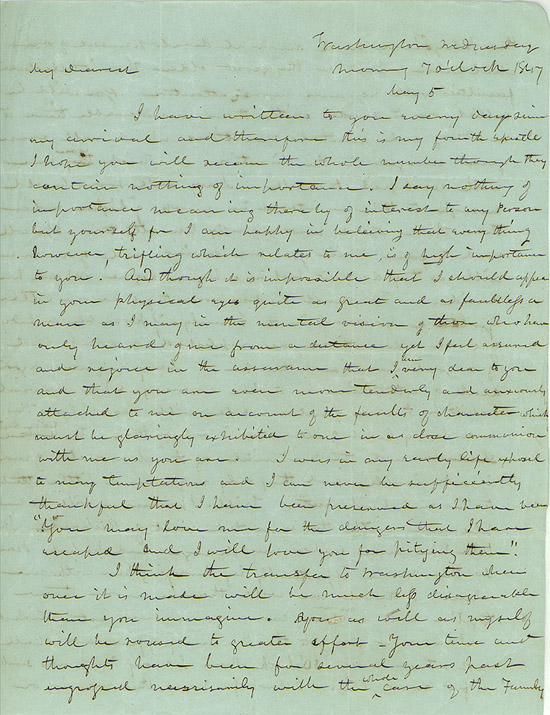 Washington Wednesday
My Dearest morning 7 o'clock 1847
May 5
I have written to you every day since
my arrival and therefore this is my fourth epistle
I hope you will receive the whole number though they
contain nothing of importance. I say nothing of
importance meaning thereby of interest to any Person
but yourself for I am happy in believing that everything
however, trifling which relates to me, is of high importance
to you. And though it is impossible that I should appear
in your physical eyes quite as great and as faultless a
man as I may in the mental vision of those who have
only heard of me from a distance yet I feel assured
and rejoice in the assurance that I am very dear to you
and that you are even more tenderly and anxiously
attached to me on account of the faults of character which
must be glaringly exhibited to one in as close communion
with me as you are. I was in my early life exposed
to many temptations and I can never be sufficiently
thankful that I have been preserved as I have been
"You may love me for the dangers that I have
escaped and I will love you for pitying them".
I think the transfer to Washington when
once it is made will be much less disagreeable
than you immagine. You as well as myself
will be roused to greater effort – Your time and
thoughts have been for several years past
engrossed necessarily with the whole care of the Family